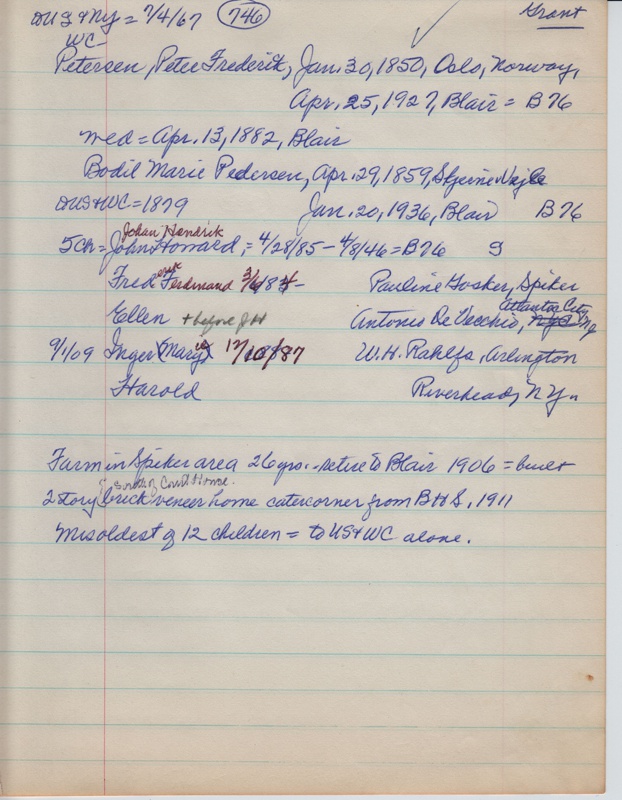 DUS & NY = 7/4/67 746 Grant
WC
Petersen, Peter Frederik, Jan. 30, 1850, Oslo, Norway,
Apr. 25, 1927, Blair = B 76
med = Apr. 13, 1882, Blair
Bodil Marie Pedersen, Apr. 29, 1859, Skjerne Vejle
DUS&WC = 1879 Jan. 20, 1936, Blair B 76
Johan Hendrik
5ch = John Howard, = 4/28/85 - 4/8/46 = B76 S
Fred Ferdinand 84 - Pauline Gosker, Spiker
Ellen + before JH Antonio De Vecchio, Atlantic City, NJ
9/1/09 Inger (Marie) 12/10/87 W.H. Rahlfs, Arlington
Harold Riverhead, N.Y.
Farm in Spiker area 26 yrs. - retire to Blair 1906 = built
South of Court House.
2 story brick veneer home catercorner from BHS, 1911
M is oldest of 12 children = to US & WC alone.